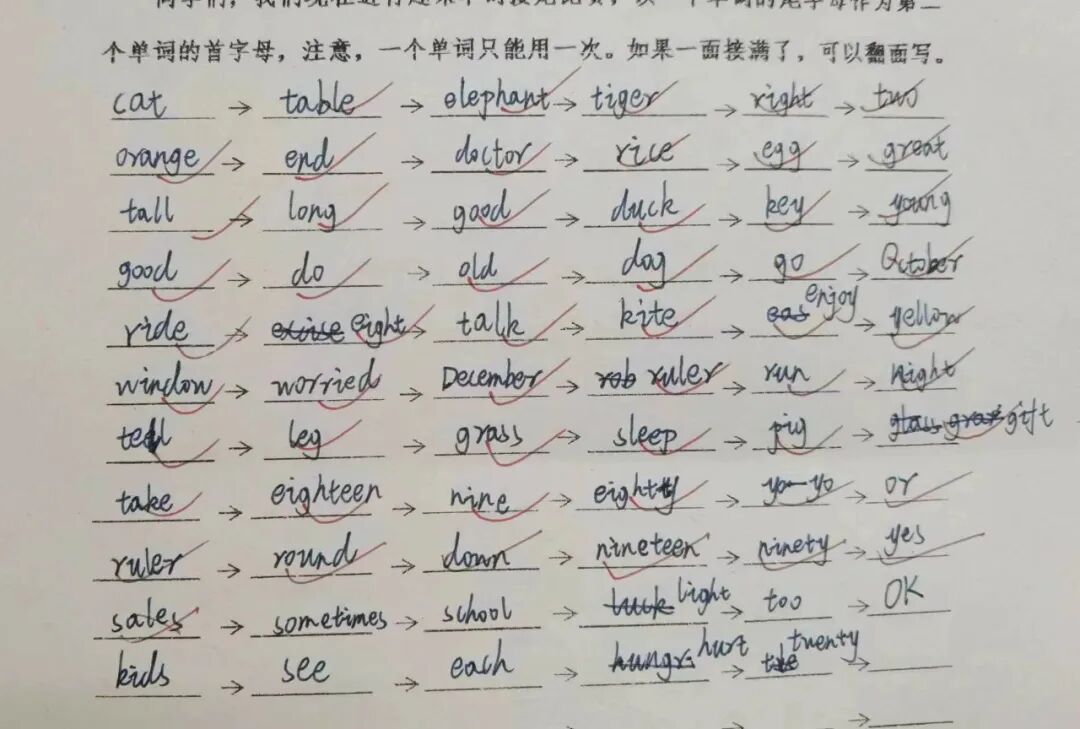 个单词的首字母，注意，一个单词只能用一次。如果一面接满了，可以翻面写。
cat → table → elephant → tiger → right → two
orange → end → doctor → rice → egg → great
tall → long → good → duck → key → young
good → do → old → dog → go → October
ride → eight → talk → kite → enjoy → yellow
window → worried → December → ruler → run → night
tell → leg → grass → sleep → pig → gift
take → eighteen → nine → eighty → yo-yo → or
ruler → round → down → nineteen → ninety → yes
sales → sometimes → school → light → too → OK
kids → see → each → hurt → twenty →